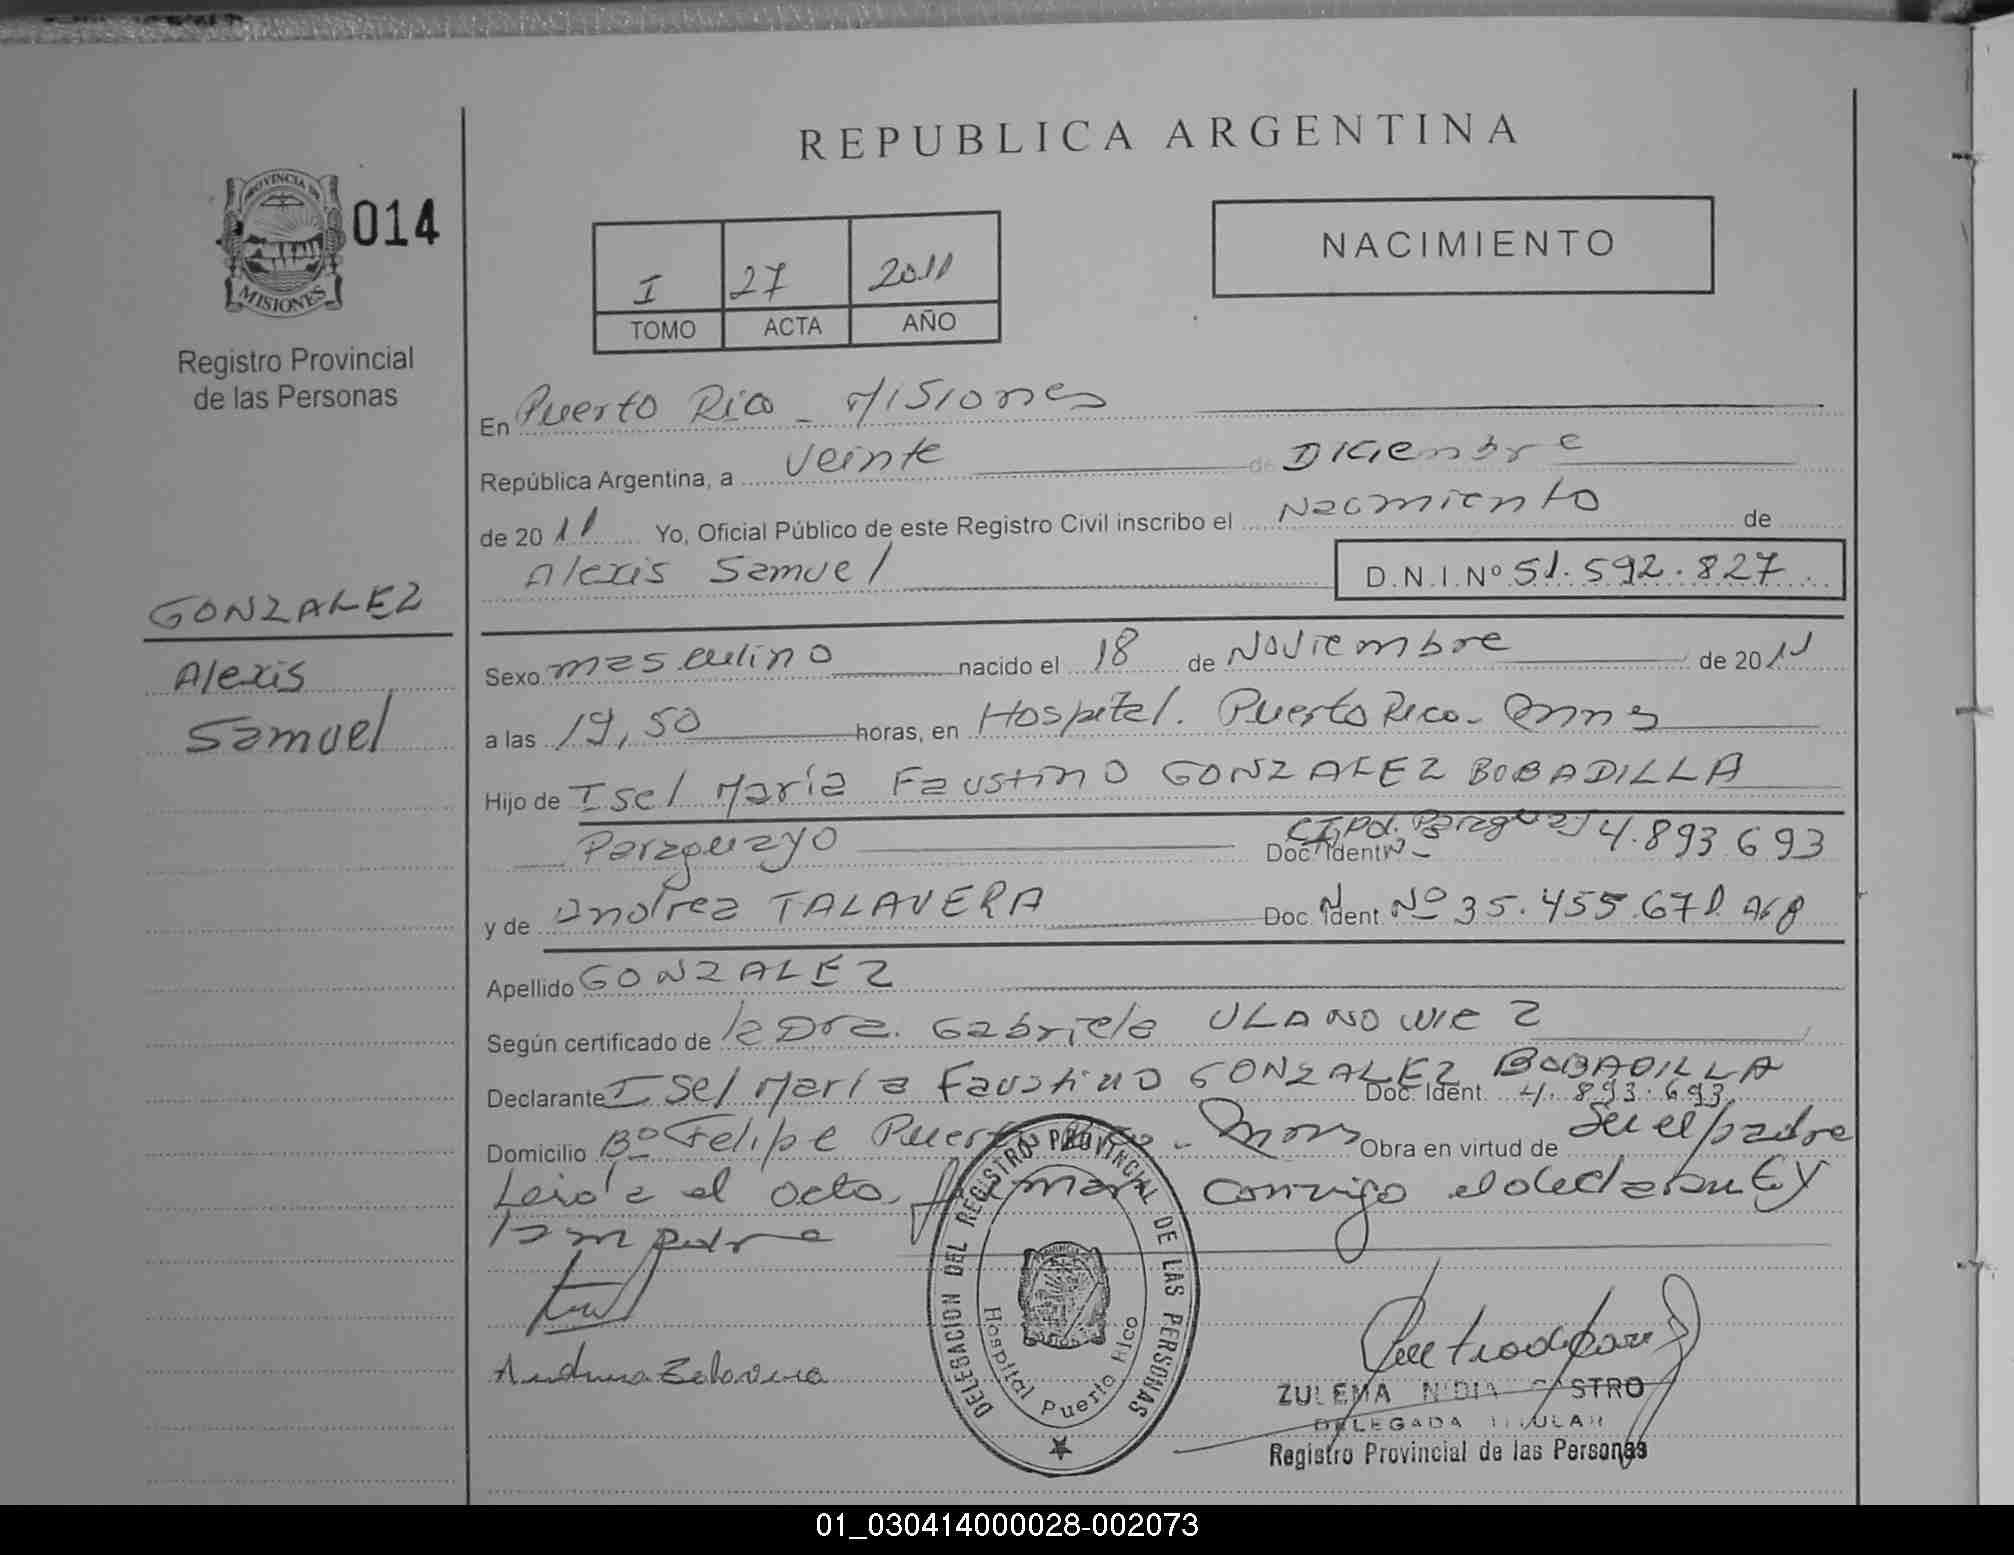 REPUBLICA ARGENTINA
PROVINCIA DE
MISIONES
014
Registro Provincial
de las Personas
I 27 2011
TOMO ACTA AÑO
NACIMIENTO
En Puerto Rico - Misiones
República Argentina, a veinte de Diciembre
de 2011 Yo, Oficial Público de este Registro Civil inscribo el Nacimiento de
Alexis Samuel D.N.I. Nº 51.592.827
GONZALEZ
Alexis
Samuel
Sexo masculino nacido el 18 de Noviembre de 2011
a las 19,50 horas, en Hospital. Puerto Rico - Mnes
Hijo de Isel María Faustino GONZALEZ BOBADILLA
Paraguayo Doc. Ident. C.I. Pol. Paraguay 4.893.693
y de Andrea TALAVERA Doc. Ident. Nº 35.455.671
Apellido GONZALEZ
Según certificado de la Dra. Gabriela ULANOWICZ
Declarante Isel María Faustino GONZALEZ BOBADILLA Doc. Ident. 4.893.693
Domicilio Bº Felipe Puerto Rico - Mnes Obra en virtud de ser el padre
Leida el acta, firman conmigo el declarante y
la madre
Andrea Talavera
DELEGACION DEL REGISTRO PROVINCIAL DE LAS PERSONAS
Hospital Puerto Rico
ZULEMA NIDIA CASTRO
DELEGADA TITULAR
Registro Provincial de las Personas
01_030414000028-002073